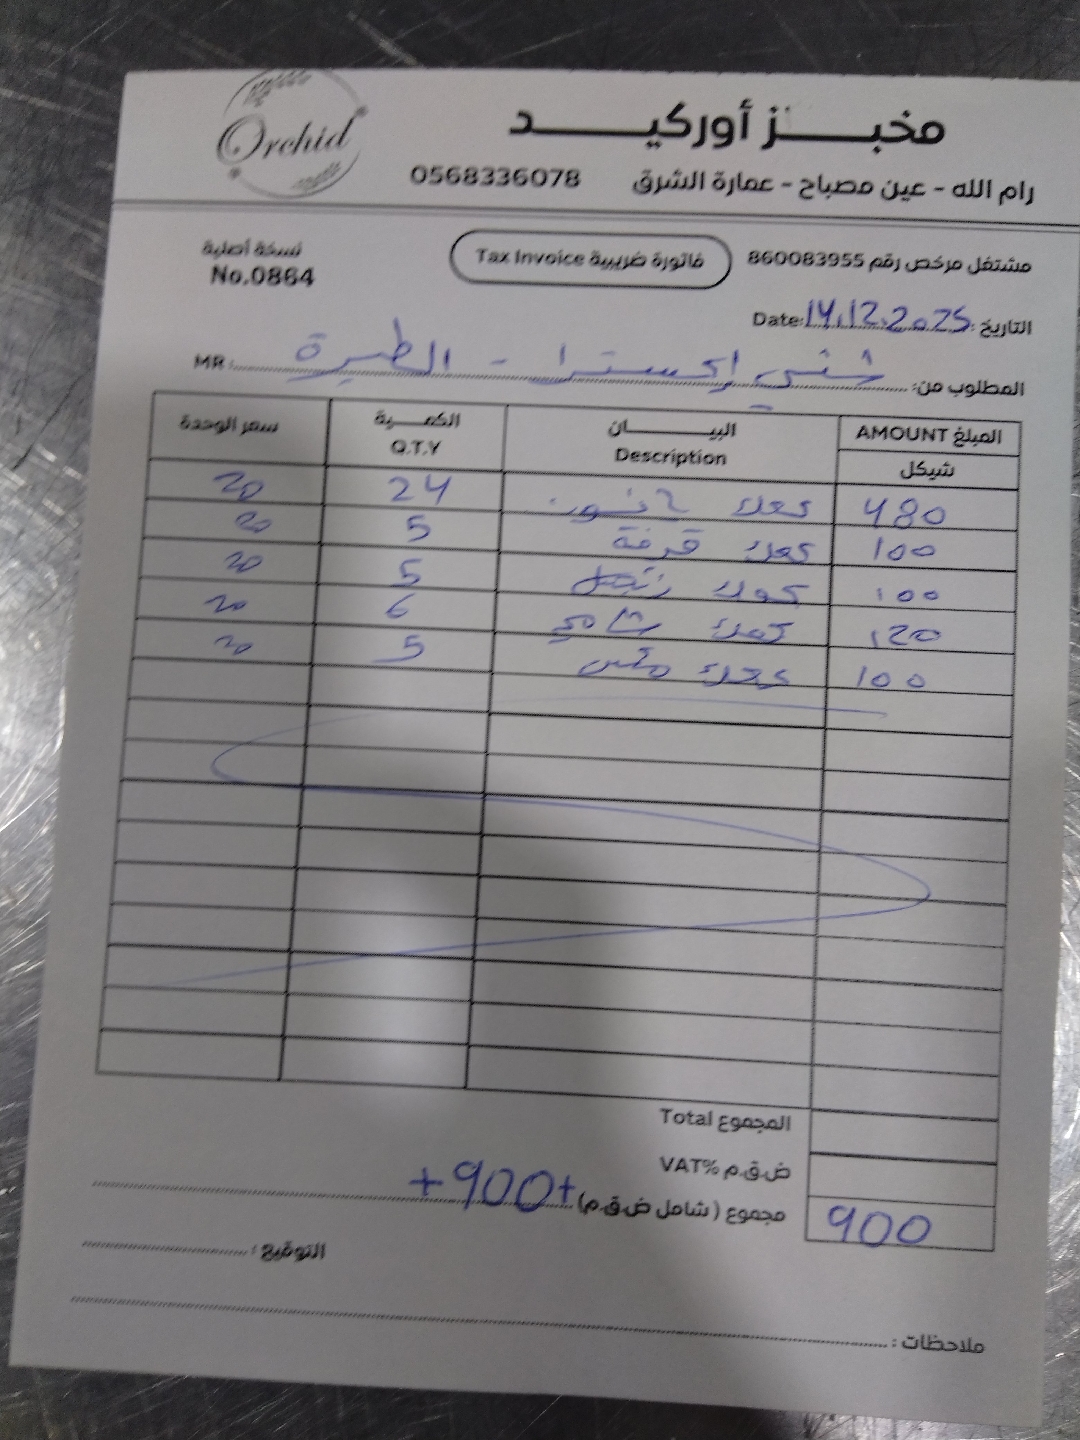 Orchid
مخبز أوركيد
رام الله - عين مصباح - عمارة الشرق 0568336078
مشتغل مرخص رقم 860083955
فاتورة ضريبية Tax Invoice
نسخة أصلية
No.0864
التاريخ: Date: 14.12.2025
المطلوب من: إكسترا - الطيرة MR:
المبلغ AMOUNT البيـــان الكمـية سعر الوحدة
شيكل Description Q.T.Y
480 كعك يانسون 24 20
100 كعك قرفة 5 20
100 كعك 5 20
120 كعك شامي 6 20
100 كعك 5 20
المجموع Total
ض.ق.م VAT%
مجموع (شامل ض.ق.م) +900+ 900
التوقيع:
ملاحظات: